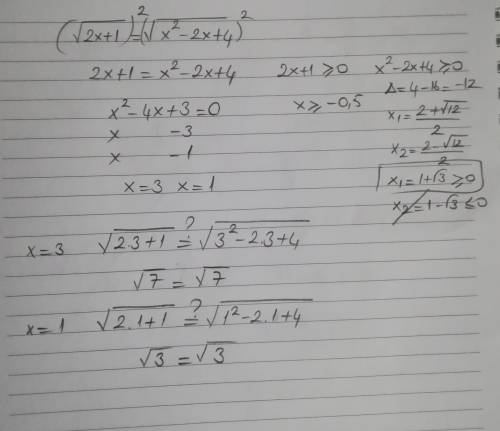 (√2x+1)² = (√x²-2x+4)²
2x+1 = x²-2x+4   2x+1 ≥0   x²-2x+4 ≥0
Δ=4-16=-12
x²-4x+3=0   x ≥ -0,5   x₁=2+√12/2
x   -3   x₂=2-√12/2
x   -1
x=3 x=1   x₁=1+√3 ≥0
x₂=1-√3 ≤0
x=3   √2.3+1 ≟ √3²-2.3+4
√7 = √7
x=1   √2.1+1 ≟ √1²-2.1+4
√3 = √3